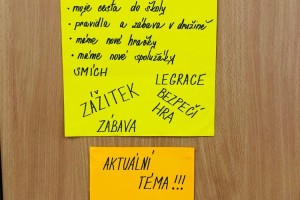 • moje cesta do školy
• pravidla a zábava v družině
• máme nové hračky
• máme nové spolužáky
SMÍCH
LEGRACE
ZÁŽITEK
BEZPEČÍ
HRA
ZÁBAVA
AKTUÁLNÍ
TÉMA!!!